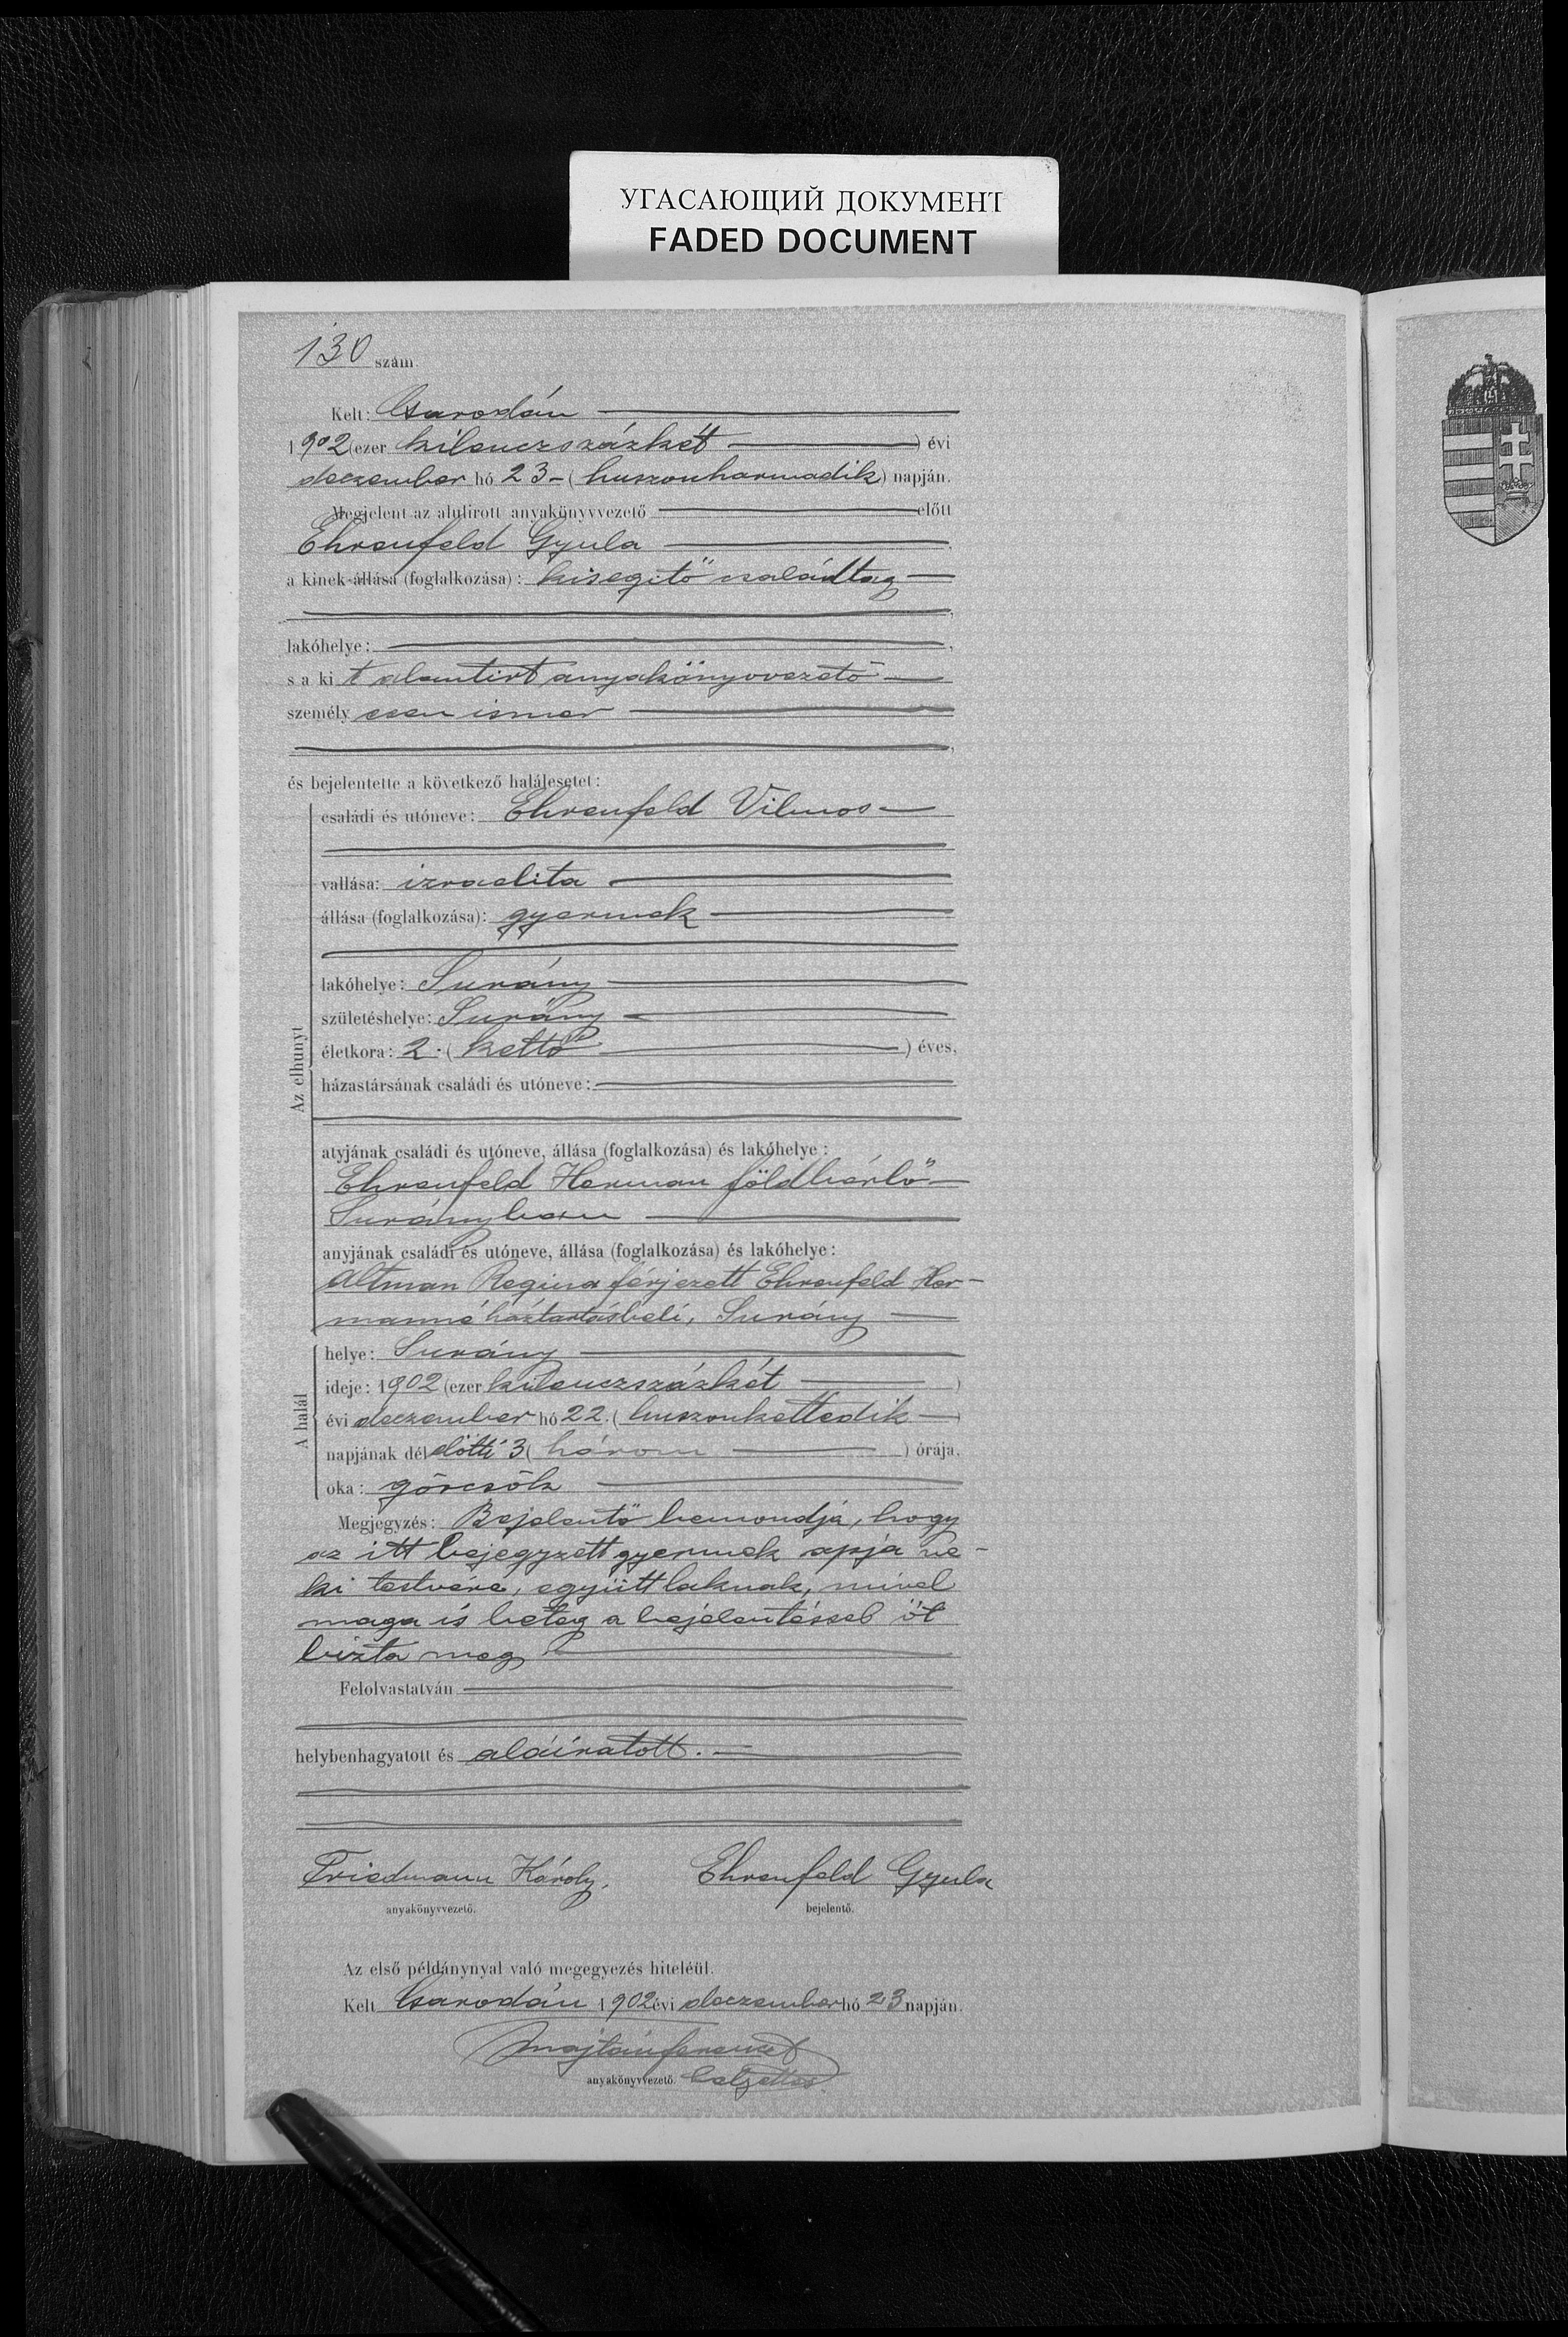 УГАСАЮЩИЙ ДОКУМЕНТ
FADED DOCUMENT
130 szám.
Kelt: Csarodán
1902 (ezer kilenczszázkét ) évi
deczember hó 23-( huszonharmadik) napján.
Megjelent az alulirott anyakönyvvezető előtt
Ehrenfeld Gyula
a kinek állása (foglalkozása): kisegitő családtag
lakóhelye:
s a ki t alantirt anyakönyvvezető
személy esen ismer
és bejelentette a következő halálesetet:
Az elhunyt
családi és utóneve: Ehrenfeld Vilmos
vallása: izraelita
állása (foglalkozása): gyermek
lakóhelye: Surány
születéshelye: Surány
életkora: 2.( kettő ) éves,
házastársának családi és utóneve:
atyjának családi és utóneve, állása (foglalkozása) és lakóhelye:
Ehrenfeld Herman földbérlő
Surányban
anyjának családi és utóneve, állása (foglalkozása) és lakóhelye:
Altman Regina férjezett Ehrenfeld Her-
manné háztartásbeli, Surány
A halál
helye: Surány
ideje: 1902 (ezer kilenczszázkét )
évi deczember hó 22.( huszonkettedik )
napjának dél előtti 3( három ) órája.
oka: görcsök
Megjegyzés: Bejelentő bemondja, hogy
az itt bejegyzett gyermek apja ne-
ki testvére, együtt laknak, mivel
maga is beteg a bejelentéssel őt
bizta meg
Felolvastatván
helybenhagyatott és aláiratott.
Friedmann Károly. Ehrenfeld Gyula
anyakönyvvezető. bejelentő.
Az első példánynyal való megegyezés hiteléül.
Kelt Csarodán 1902 évi deczember hó 23 napján.
anyakönyvvezető